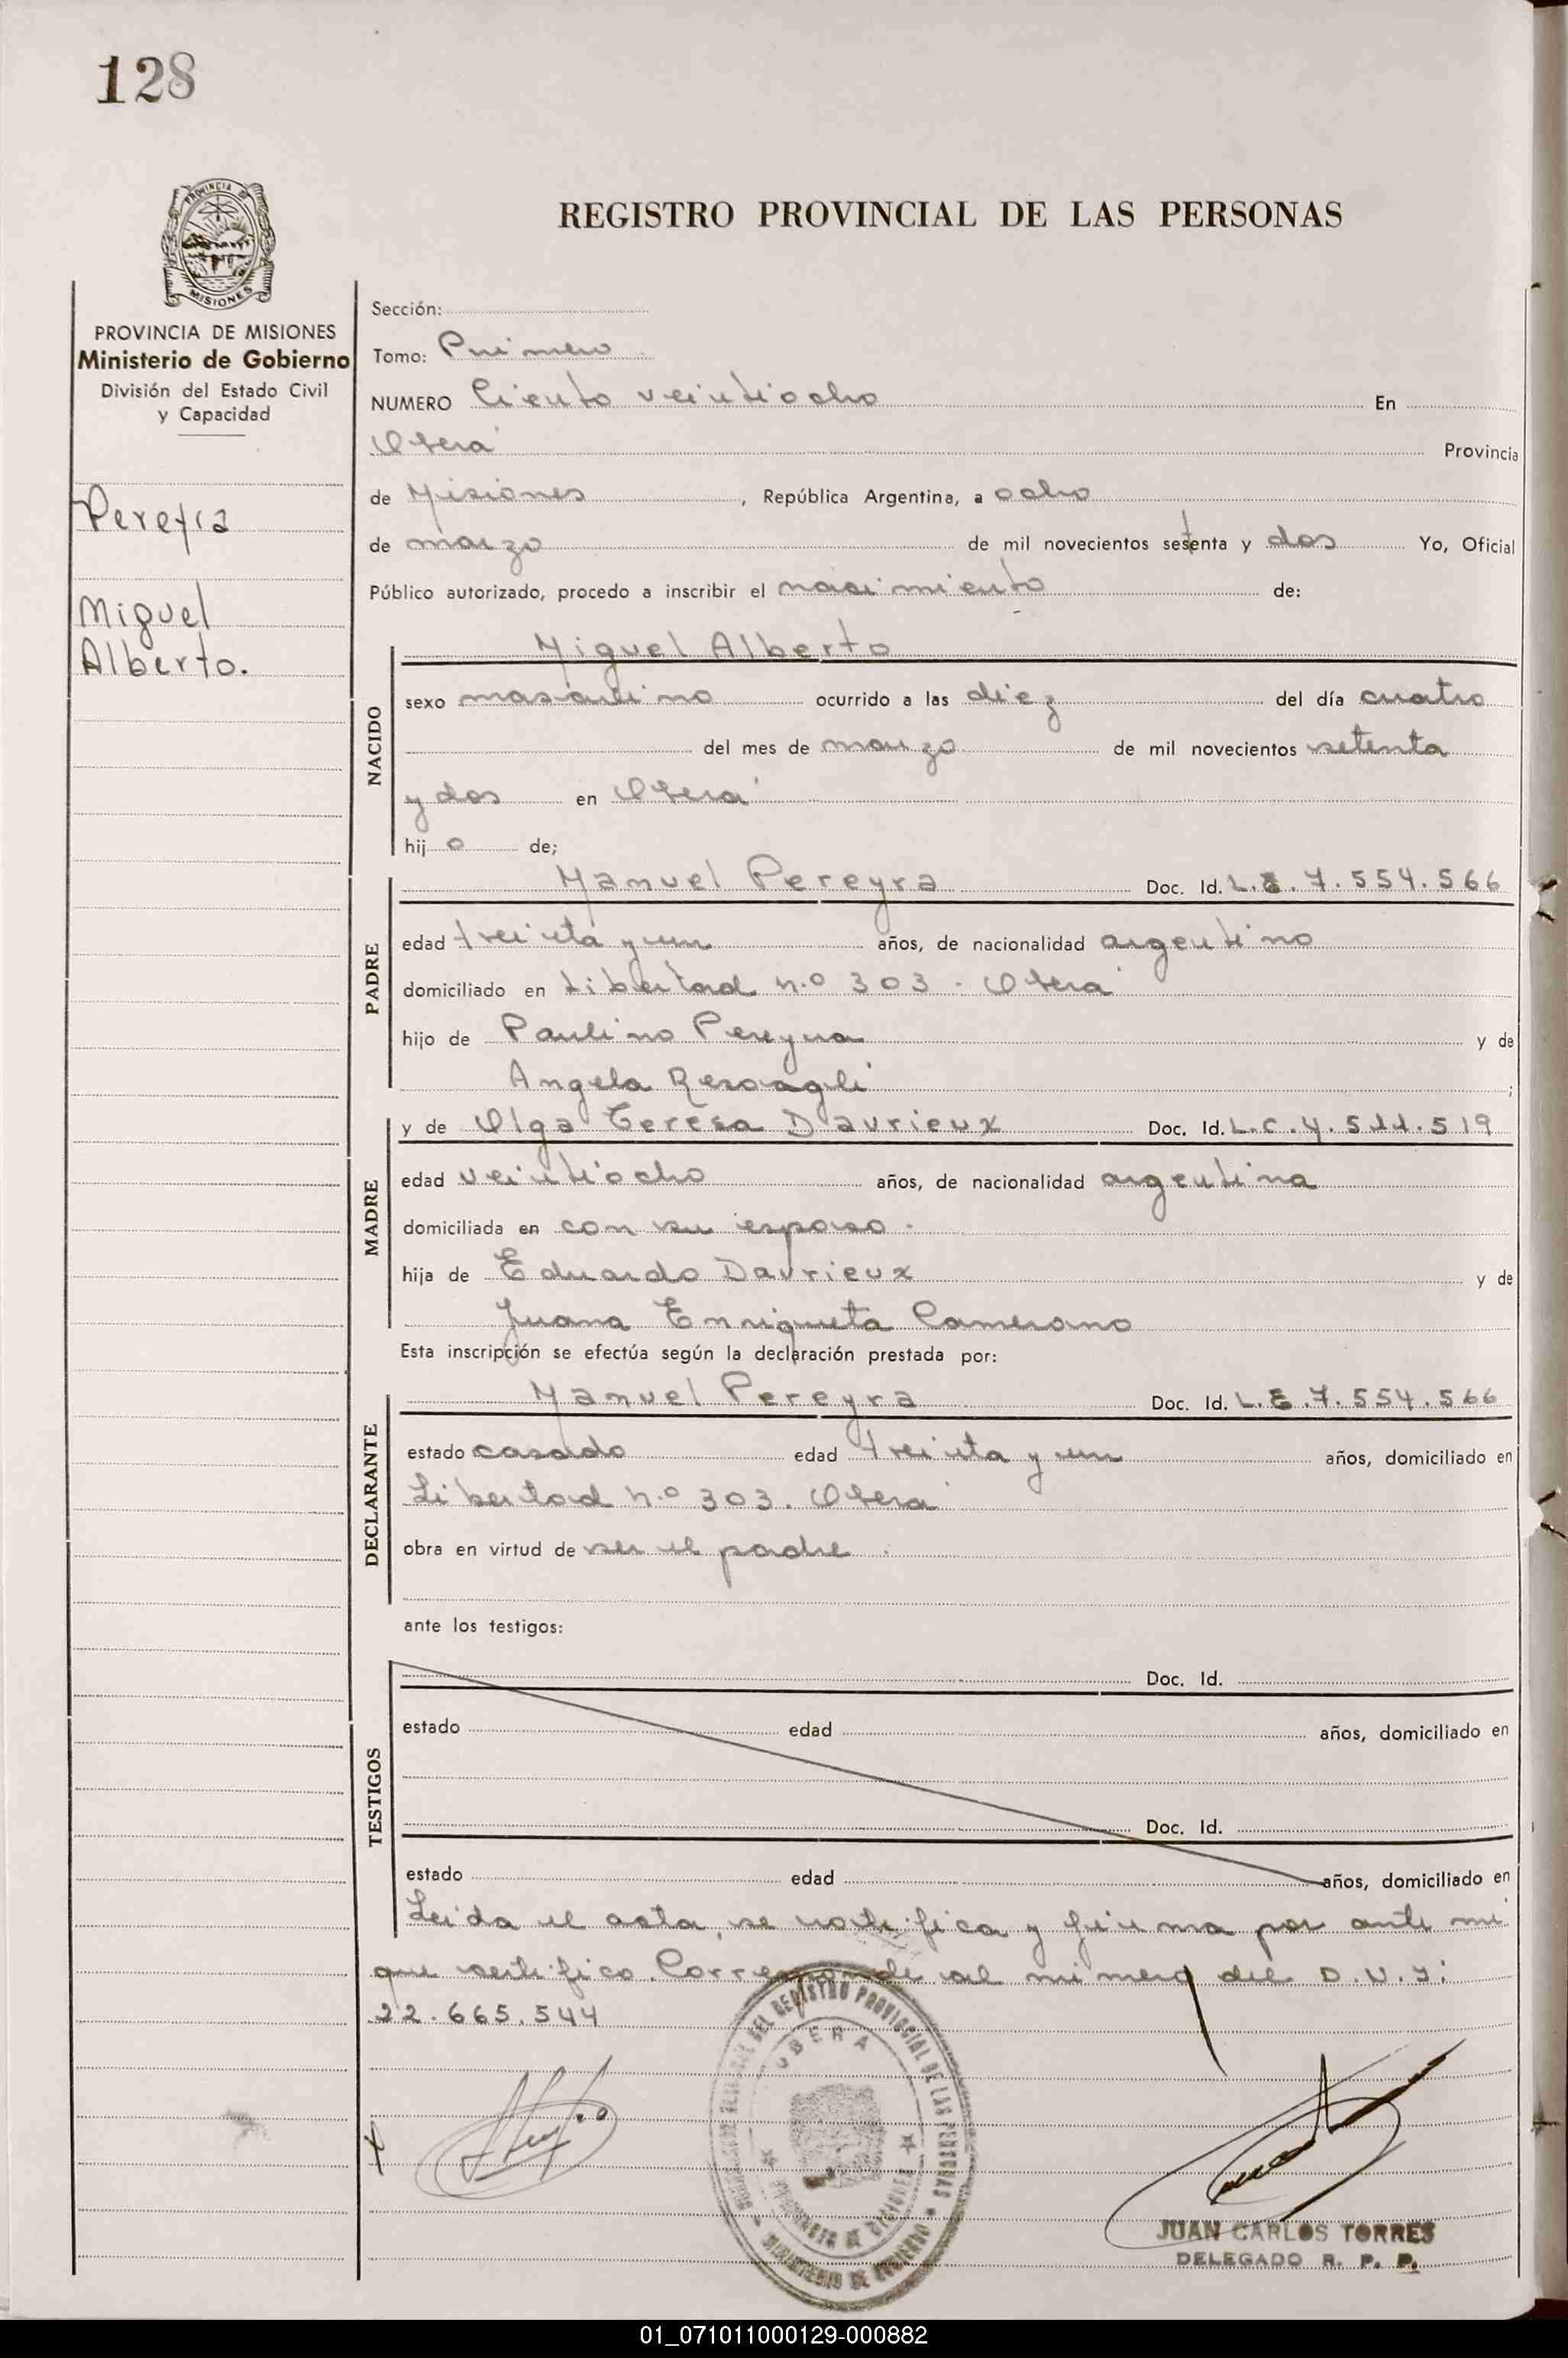 128
PROVINCIA DE
MISIONES
REGISTRO PROVINCIAL DE LAS PERSONAS
PROVINCIA DE MISIONES
Ministerio de Gobierno
División del Estado Civil
y Capacidad
Pereyra
Miguel
Alberto.
Sección:
Tomo: Primero
NUMERO Ciento veintiocho En
Oberá Provincia
de Misiones, República Argentina, a ocho
de marzo de mil novecientos setenta y dos Yo, Oficial
Público autorizado, procedo a inscribir el nacimiento de:
NACIDO
Miguel Alberto
sexo masculino ocurrido a las diez del día cuatro
del mes de marzo de mil novecientos setenta
y dos en Oberá
hij o de;
PADRE
Manuel Pereyra Doc. Id. L.E. 7.554.566
edad treinta y un años, de nacionalidad argentino
domiciliado en Libertad n.o 303. Oberá
hijo de Paulino Pereyra y de
Angela ;
MADRE
y de Olga Teresa Davrieux Doc. Id. L.C. 4.511.519
edad veintiocho años, de nacionalidad argentina
domiciliada en con su esposo.
hija de Eduardo Davrieux y de
Juana Enriqueta Camerano
Esta inscripción se efectúa según la declaración prestada por:
DECLARANTE
Manuel Pereyra Doc. Id. L.E. 7.554.566
estado casado edad treinta y un años, domiciliado en
Libertad n.o 303. Oberá
obra en virtud de ser el padre.
ante los testigos:
TESTIGOS
Doc. Id.
estado edad años, domiciliado en
Doc. Id.
estado edad años, domiciliado en
Leída el acta, se ratifica y firma por ante mí
que certifico. Corresponde al número del D.N.I:
22.665.544
DEL REGISTRO PROVINCIAL DE LAS PERSONAS
OBERA
PROVINCIA DE MISIONES
MINISTERIO DE GOBIERNO
JUAN CARLOS TORRES
DELEGADO R. P. P.
01_071011000129-000882